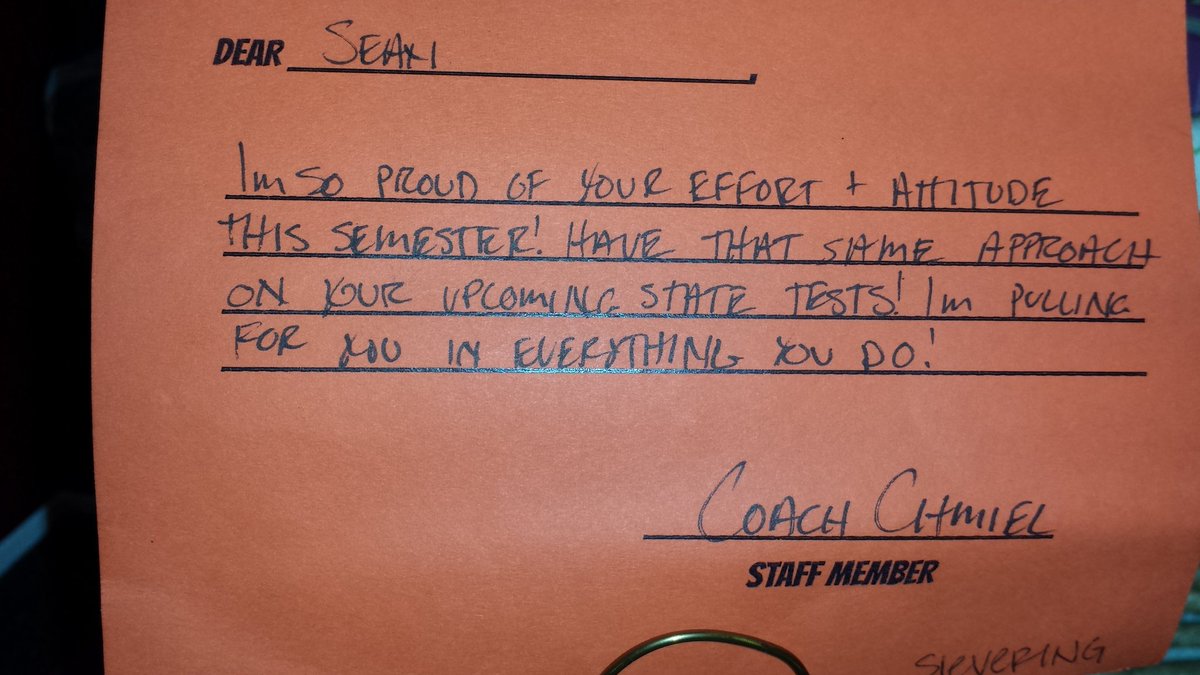 DEAR SEAN
Im SO PROUD OF YOUR EFFORT + ATTITUDE
THIS SEMESTER! HAVE THAT SAME APPROACH
ON YOUR UPCOMING STATE TESTS! Im PULLING
FOR YOU IN EVERYTHING YOU DO!
COACH CHMIEL
STAFF MEMBER
SIEVERING